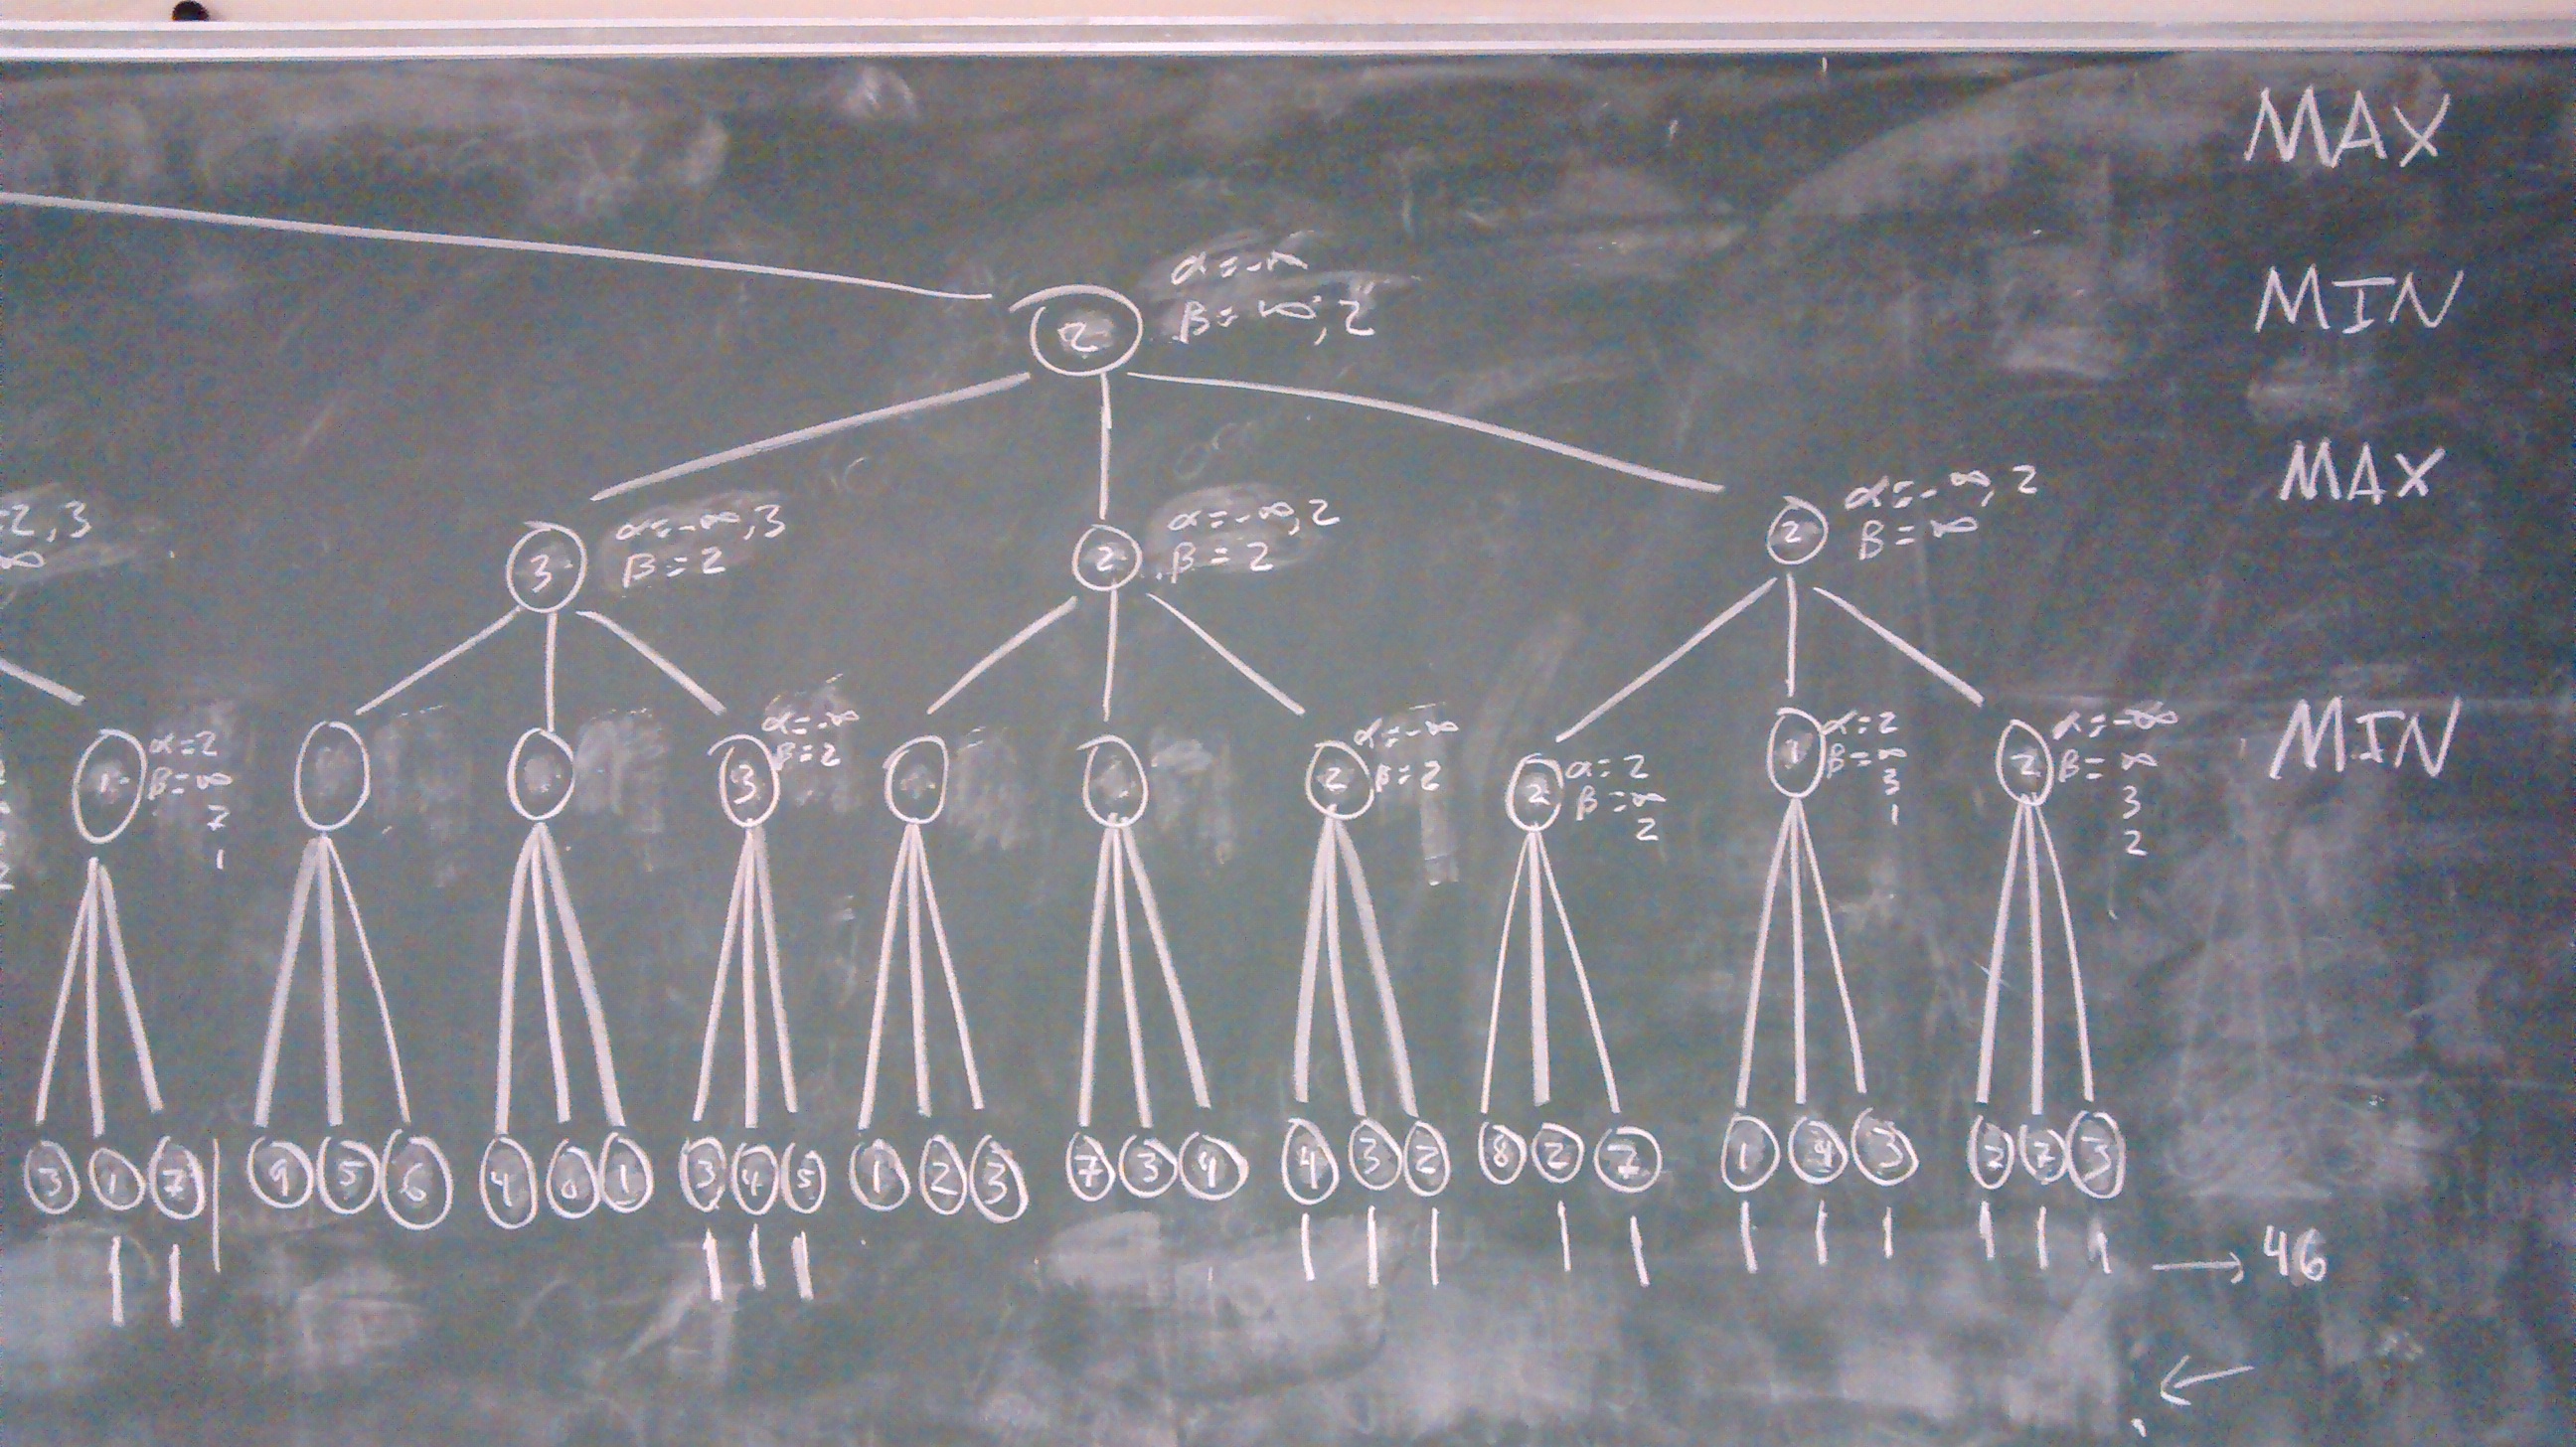 MAX
α=-∞
β=∞,2
2
MIN
=2,3
∞
3
α=-∞,3
β=2
2
α=-∞,2
β=2
2
α=-∞,2
β=∞
MAX
1
α=2
β=∞
7
1
3
α=-∞
β=2
2
α=-∞
β=2
2
α=2
β=∞
2
1
α=2
β=∞
3
1
2
α=-∞
β=∞
3
2
MIN
3 1 7 9 5 6 4 0 1 3 4 5 1 2 3 7 3 4 4 3 2 8 2 7 1 3 2 7 3
→ 46
←